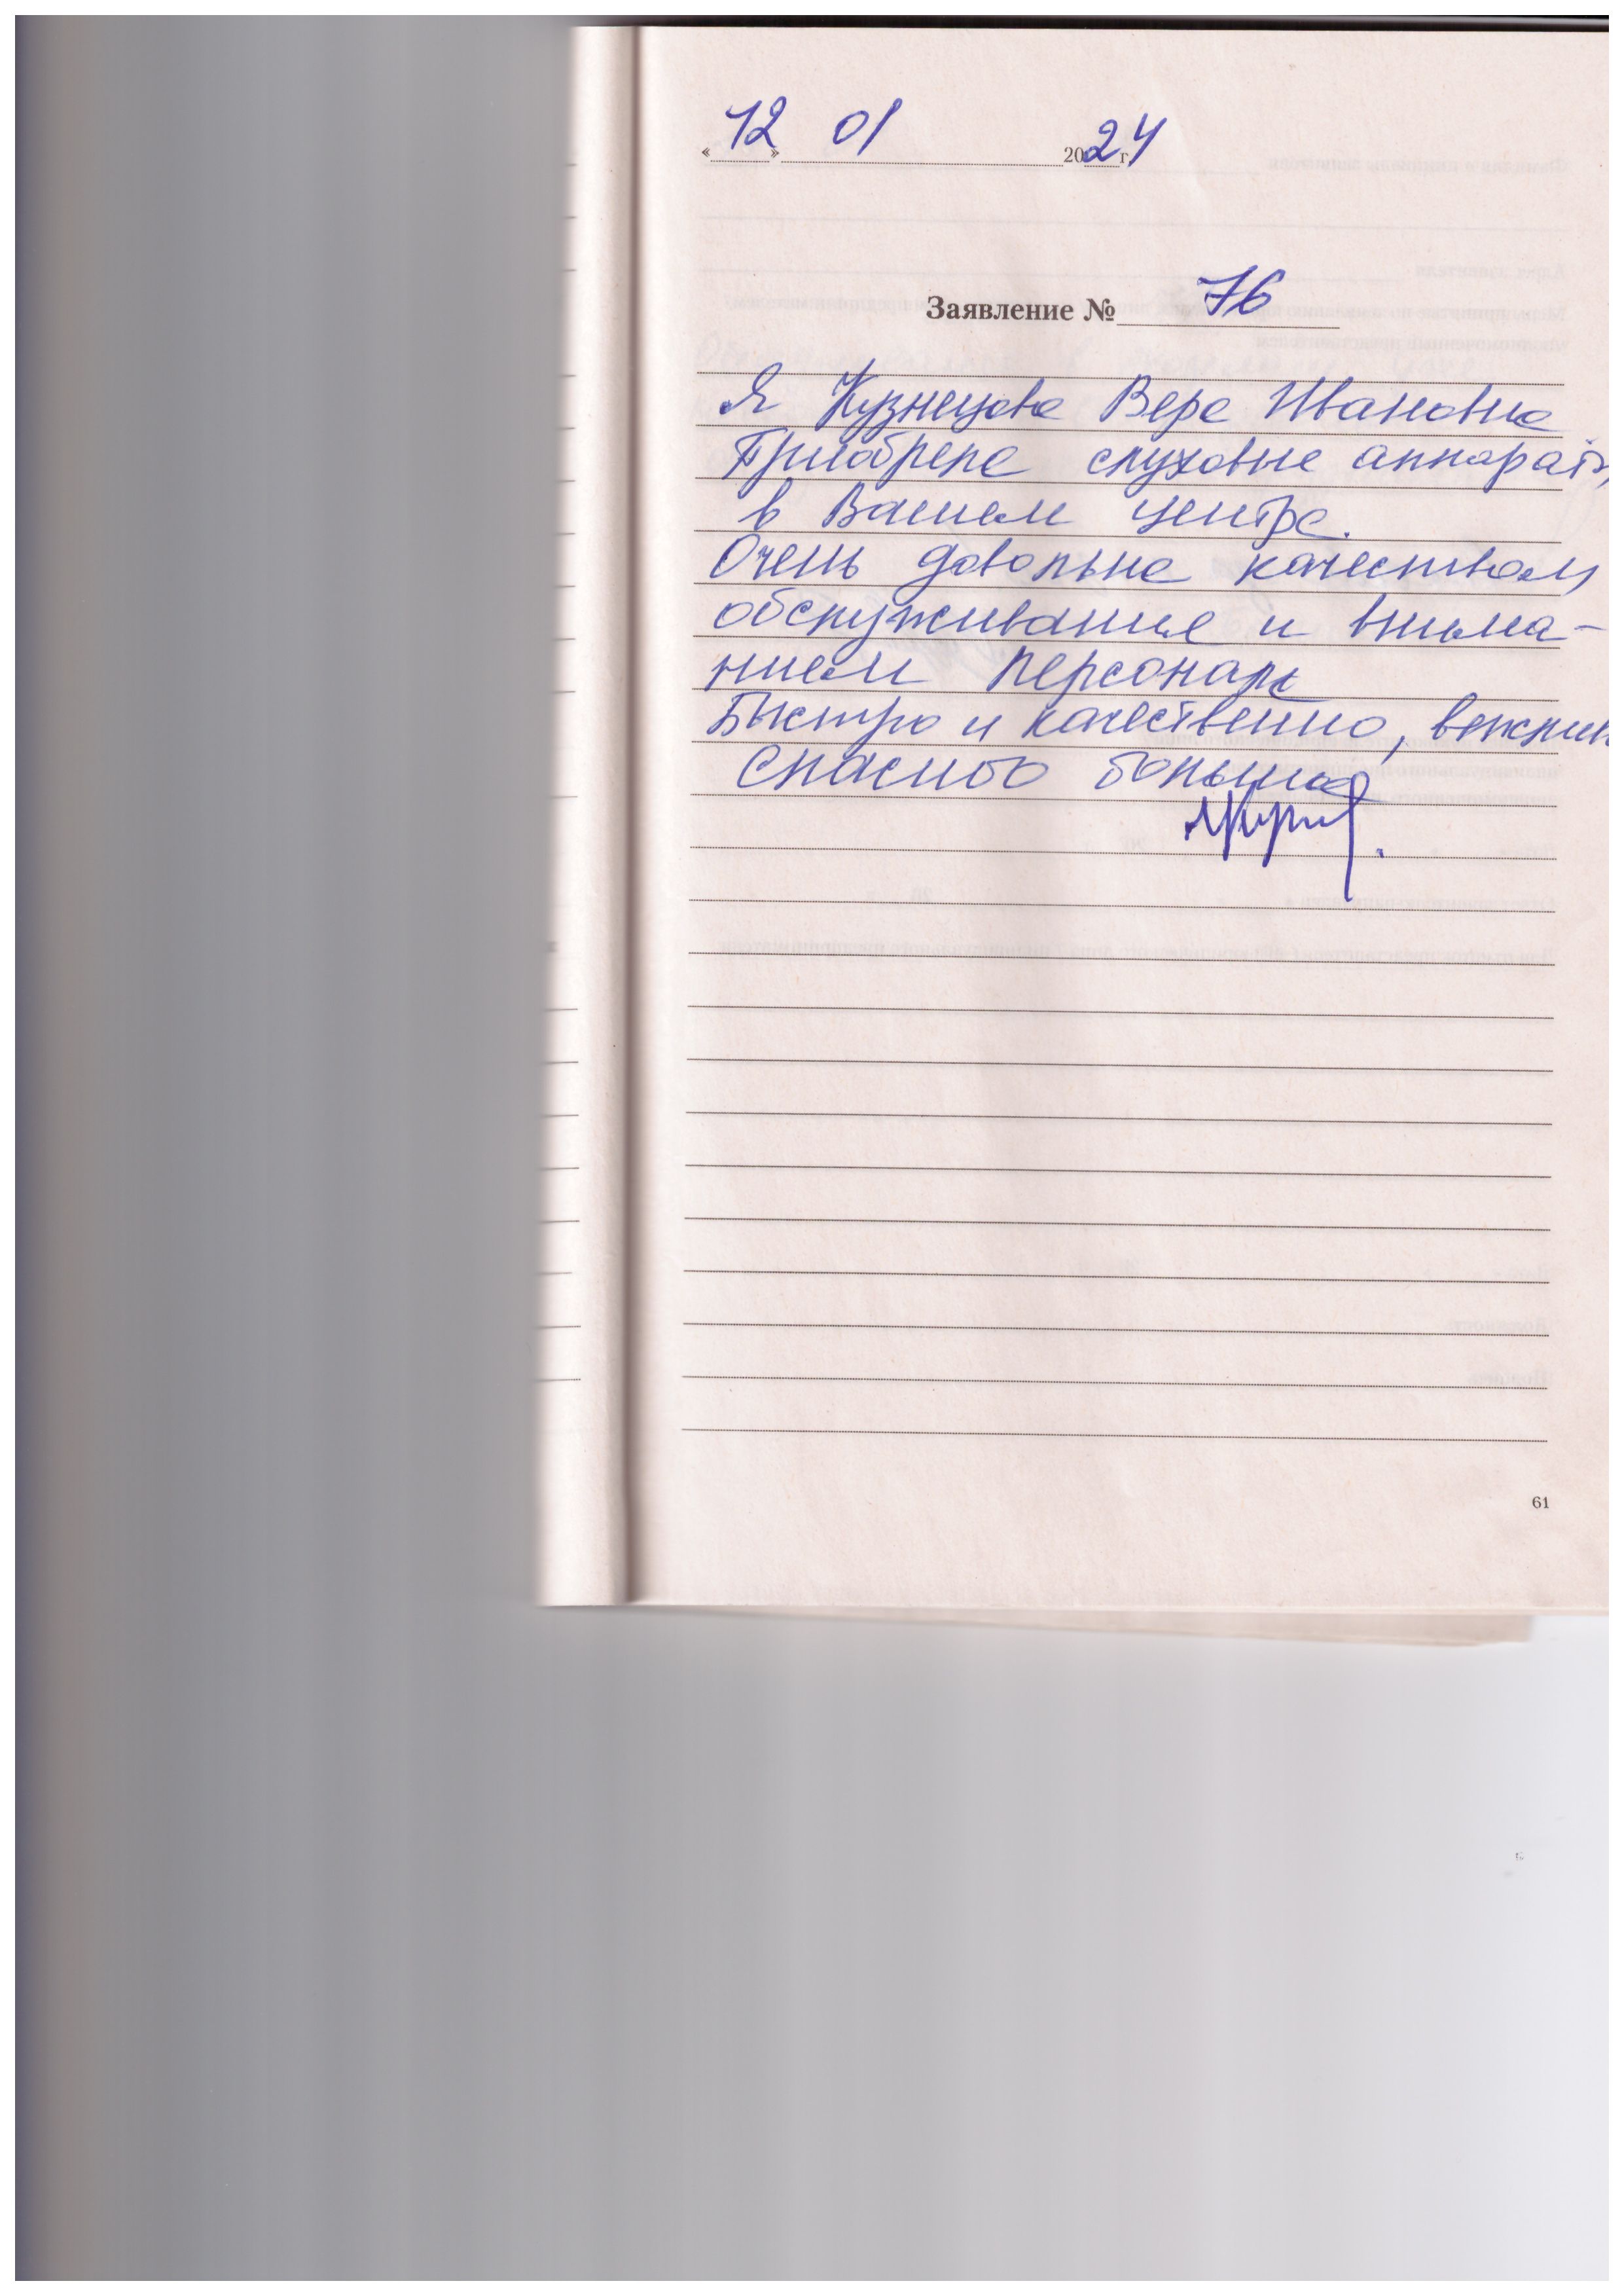 «12» 01 2024 г.
Заявление № 76
Я Кузнецова Вера Ивановна
Приобрела слуховые аппараты
в Вашем центре.
Очень довольна качеством
обслуживания и внима-
нием персонала
Быстро и качественно, вежлив
Спасибо большое
61